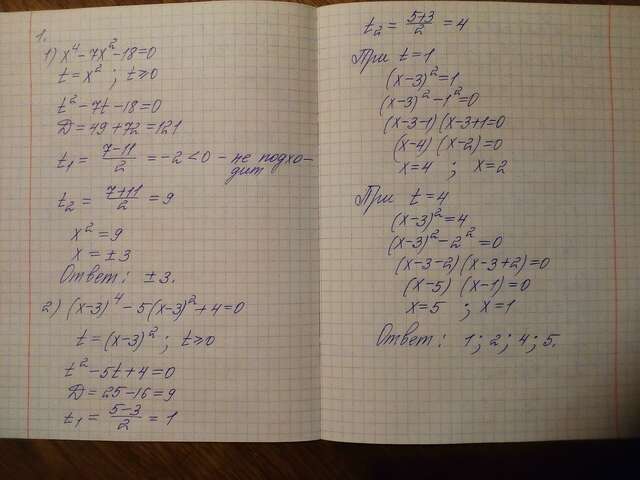 1.
1) x⁴-7x²-18=0
t=x² ; t≥0
t²-7t-18=0
D=49+72=121
t₁ = (7-11)/2 = -2<0 - не подхо-
дит
t₂ = (7+11)/2 = 9
x²=9
x = ±3
Ответ: ±3.
2) (x-3)⁴-5(x-3)²+4=0
t=(x-3)² ; t≥0
t²-5t+4=0
D=25-16=9
t₁ = (5-3)/2 = 1
t₂ = (5+3)/2 = 4
При t=1
(x-3)²=1
(x-3)²-1²=0
(x-3-1)(x-3+1=0
(x-4)(x-2)=0
x=4 ; x=2
При t=4
(x-3)²=4
(x-3)²-2²=0
(x-3-2)(x-3+2)=0
(x-5)(x-1)=0
x=5 ; x=1
Ответ: 1; 2; 4; 5.